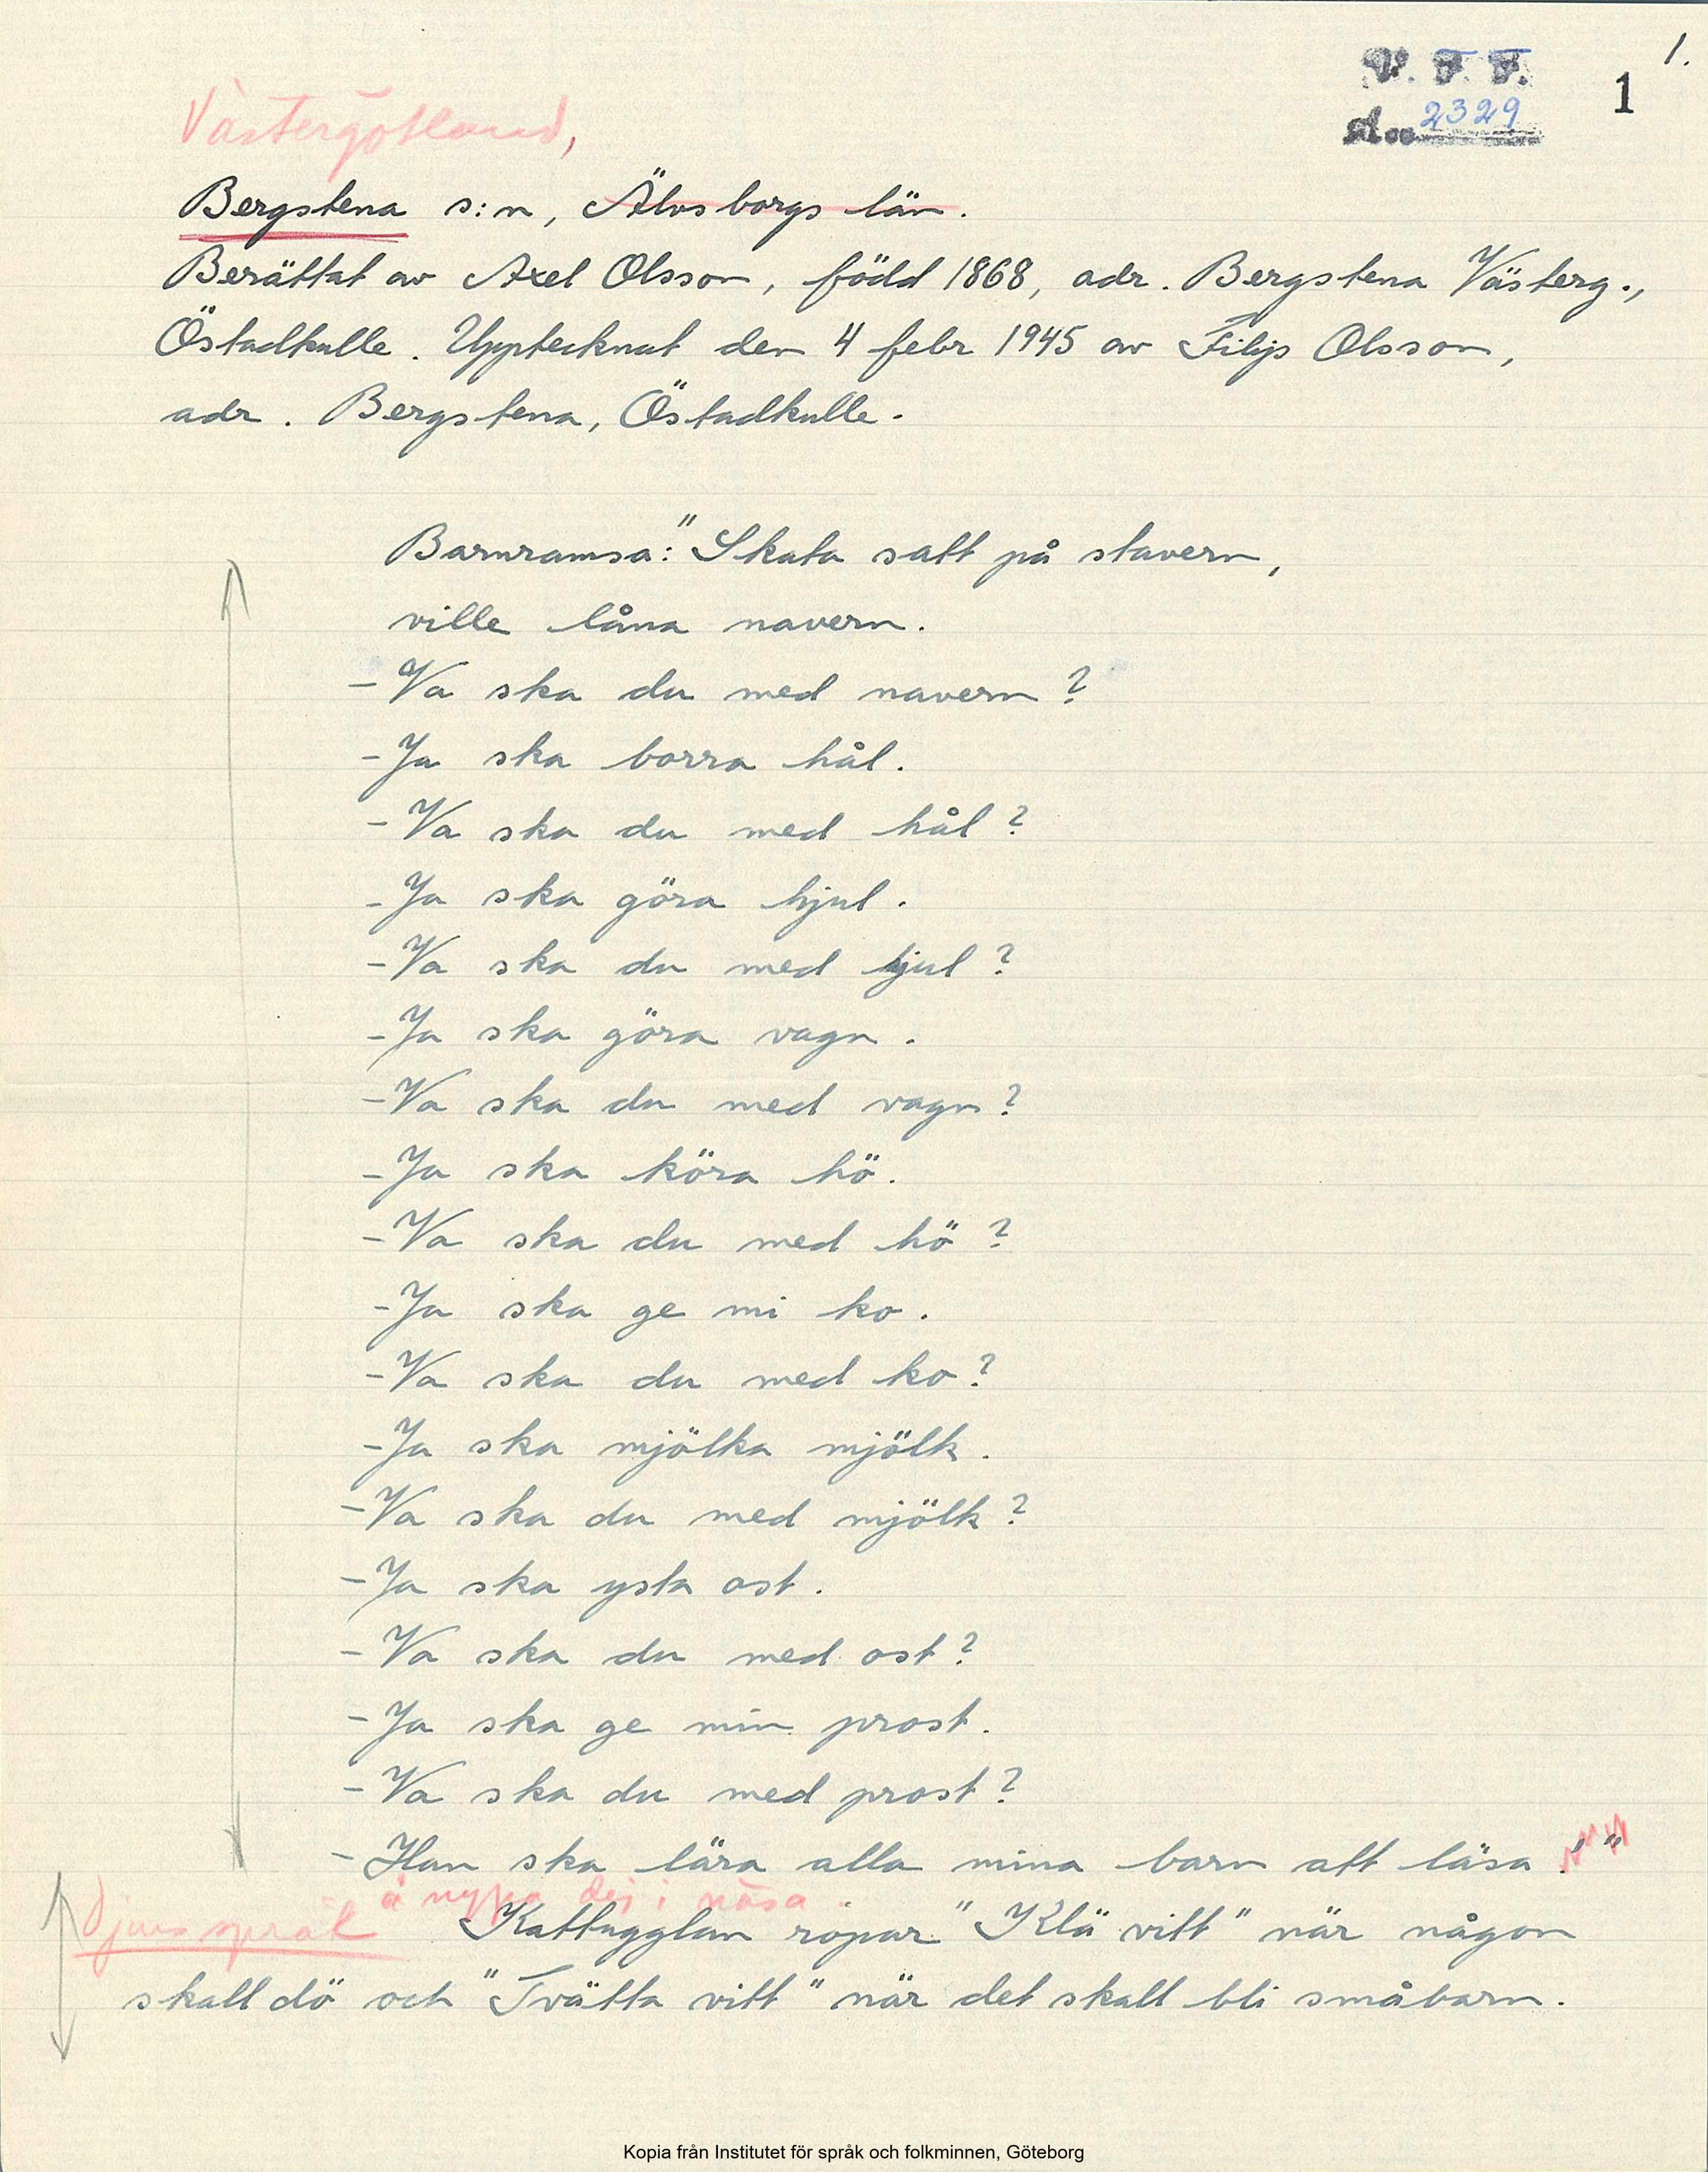 1.
V. F. F.
1
Acc. 2329
Västergötland,
Bergstena s:n, Älvsborgs län.
Berättat av Axel Olsson, född 1868, adr. Bergstena Västerg.,
Östadkulle. Upptecknat den 4 febr 1945 av Filip Olsson,
adr. Bergstena, Östadkulle.
Barnramsa: "Skata satt på stavern,
ville låna navern.
- Va ska du med navern?
- Ja ska borra hål.
- Va ska du med hål?
- Ja ska göra hjul.
- Va ska du med hjul?
- Ja ska göra vagn.
- Va ska du med vagn?
- Ja ska köra hö.
- Va ska du med hö?
- Ja ska ge mi ko.
- Va ska du med ko?
- Ja ska mjölka mjölk.
- Va ska du med mjölk?
- Ja ska ysta ost.
- Va ska du med ost?
- Ja ska ge min prost.
- Va ska du med prost?
- Han ska lära alla mina barn att läsa."
å nypa dej i näsa
Djurs språk
Kattugglan ropar "Klä vitt" när någon
skall dö och "Tvätta vitt" när det skall bli småbarn.
Kopia från Institutet för språk och folkminnen, Göteborg